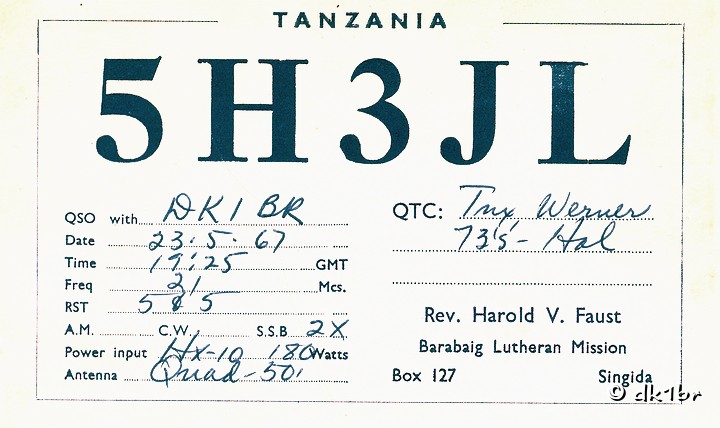 TANZANIA
5H3JL
QSO with DK1BR
Date 23.5.67
Time 19:25 GMT
Freq 21 Mcs.
RST 5 8 5
A.M. C.W. S.S.B. 2X
Power input HX-10 180 Watts
Antenna Quad-50'
QTC: Tnx Werner
73's - Hal
Rev. Harold V. Faust
Barabaig Lutheran Mission
Box 127 Singida
© dk1br